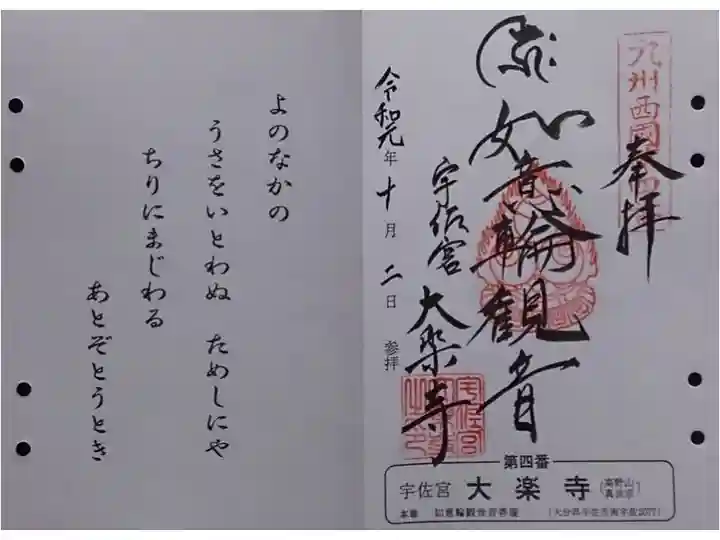 奉拝
如意輪観音
宇佐宮
大楽寺
令和元年十月二日 参拝
第四番
宇佐宮 大楽寺 (高野山真言宗)
本尊 如意輪観世音菩薩
よのなかの
うさをいとわぬ ためしにや
ちりにまじわる
あとぞとうとき